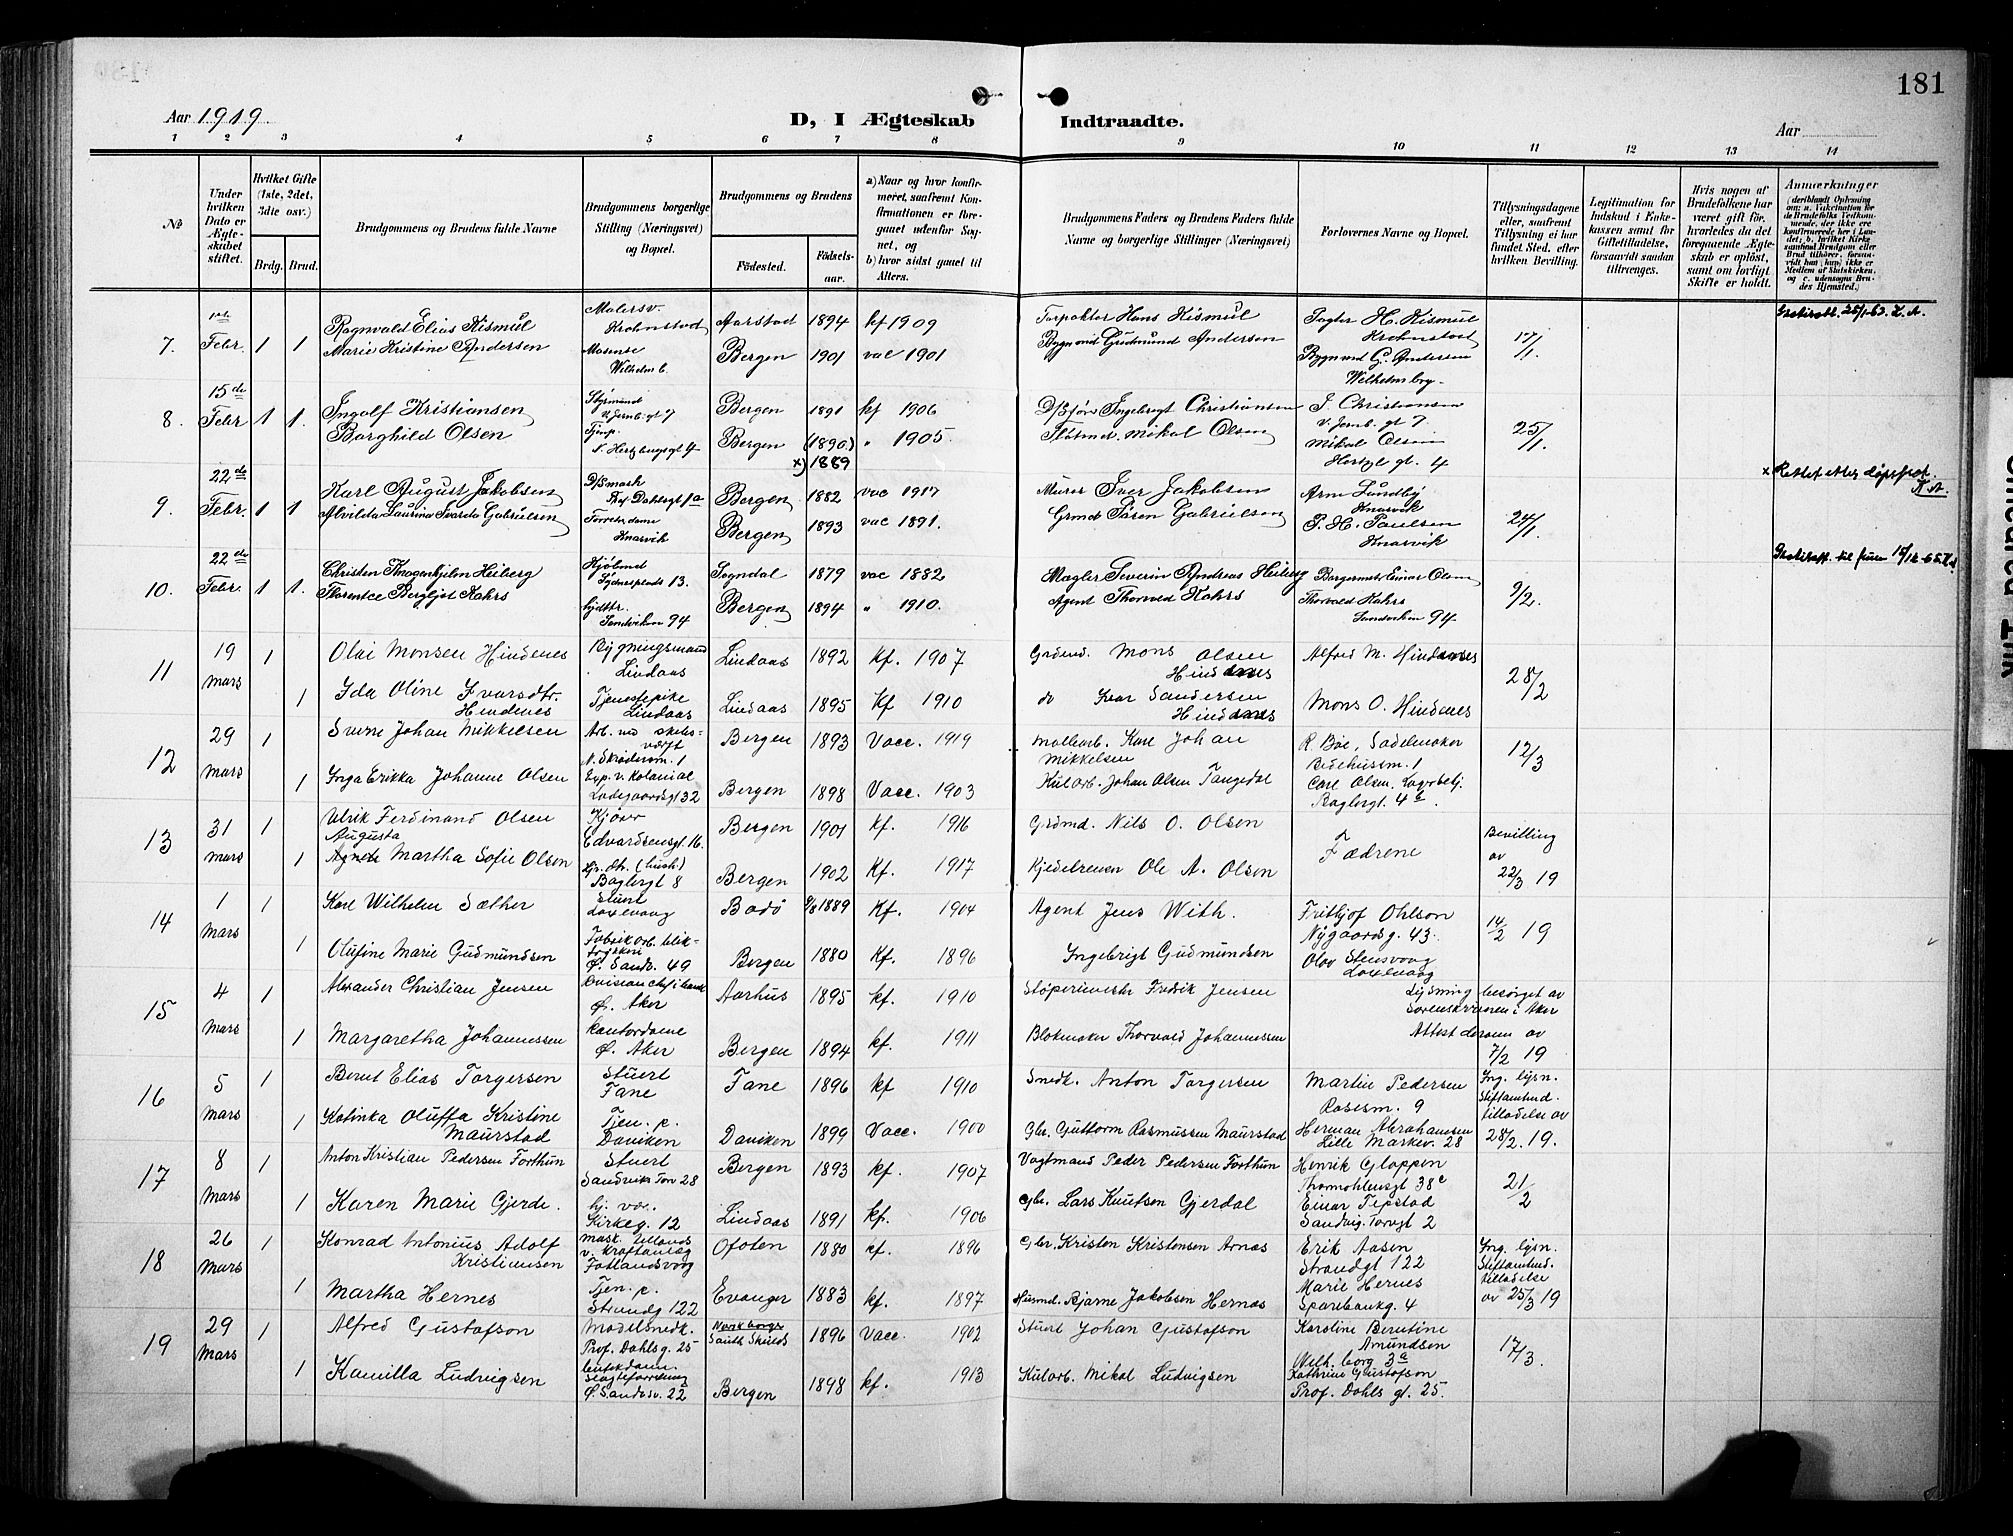 181
Aar 1919.
D, I Ægteskab Indtraadte.
Aar
1 2 3 4 5 6 7 8 9 10 11 12 13 14
№
Under hvilken Dato er Ægteskabet stiftet.
Hvilket Gifte (1ste, 2det, 3die osv.)
Brdg. Brud.
Brudgommens og Brudens fulde Navne
Brudgommens borgerlige Stilling (Næringsvei) og Bopæl.
Brudgommens og Brudens
Fødested. Fødselsaar.
a) Naar og hvor konfirmeret, saafremt Konfirmationen er foregaaet udenfor Sognet, og
b) hvor sidst gaaet til Alters.
Brudgommens Faders og Brudens Faders fulde Navne og borgerlige Stillinger (Næringsvei)
Forlovernes Navne og Bopæl.
Tillysningsdagene eller, saafremt Tillysning ei har fundet Sted, efter hvilken Bevilling.
Legitimation for Indskud i Enkekassen samt for Giftetilladelse, forsaavidt saadan tiltrænges.
Hvis nogen af Brudefolkene har været gift før, hvorledes da det foregaaende Ægteskab er opløst, samt om lovligt Skifte er holdt.
Anmerkninger
7. 1ste Febr. 1 1 Ragnvald Elias Kismul Malersv. Kronstad Aarstad 1894 kf 1909 Hans Kismul H. Kismul Kronstad 17/1.
Marie Kristine Andersen Wilhelmsb. Bergen 1901 vac 1901 Gudmund Andersen Bygmd G. Andersen Wilhelmsborg.
8. 15de Febr 1 1. Ingolf Kristiansen Styrmand V. Jernb. gt 7 Bergen 1891 kf 1906 Ingebrigt Christiansen I. Christiansen V. Jernb. gt 7. 25/1.
Borghild Olsen Bergen (1890) x) 1889 " 1905. Mikal Olsen Mikal Olsen Hertzb. gt. 4
9. 22de Febr. 1 1 Karl August Jakobsen Prof Dahlsgt 1a Bergen 1882 vac 1917 Murer Iver Jakobsen Arne Lundby Knarvik 24/1.
Alvilda Laurina Svarda Gabrielsen Knarvik Bergen 1893 vac 1891. Søren Gabrielsen P. H. Paulsen Knarvik
x Rettet etter døpsprot. K.A.
10. 22de Febr. 1 1. Christen Knagenhjelm Heiberg Kjøbmd Sydnesplads 13. Sogndal 1879 vac 1882 Mægler Severin Andreas Heiberg Borgermstr Einar Olsen 9/2.
Florentce Bergljot Kahrs Sandviken 94 Bergen 1894 " 1910. Agent Thorvald Kahrs Thorvald Kahrs Sandviken 94
11 19 Mars 1 Olai Monsen Hindenes Bygningsmand Lindaas Lindaas 1892 Kf. 1907 Grdmd. Mons Olsen Hindenes Alfred M. Hindenes 28/2
1 Ida Oline Ivarsdtr. Hindenes Tjenestepike Lindaas Lindaas 1895 Kf 1910 do Ivar Sandersen Hindenes Mons O. Hindenes
12 29 Mars 1 Sverre Johan Mikkelsen Arb. ved skibsverft N. Skrædersm. 1 Bergen 1893 Vacc. 1919 Karl Johan Mikkelsen R. Bøe, Sadelmaker Bedehussm. 1 12/3
1 Inga Erikka Johanne Olsen Exp. v. Kolonial Ladegaardsgt 32 Bergen 1898 Vacc. 1903 Kularb. Johan Olsen Tangedal Carl Olsen, Baglergt. 4b.
13 31 Mars 1 Ulrik Ferdinand Olsen Kjører Edvardsensgt. 16. Bergen 1901 kf. 1916 Grdmd. Nils O. Olsen Fædrene Bevilling av 22/3 19
1 Augusta Agnete Martha Sofie Olsen Baglergt 8 Bergen 1902 Kf. 1917 Kjedelrenser Ole A. Olsen
14 1 Mars 1 Karl Wilhelm Sæther Stuert Laxevaag Bodø 9/8 1889 Kf. 1904 Agent Jens With. Frithjof Ohlson Nygaardsg. 43. 14/2 19
1 Olufine Marie Gudmundsen Fabrikarb. bliktrykkeri Ø. Sandv. 49 Bergen 1880 Kf. 1896 Ingebrigt Gudmundsen Olav Stensvaag Laxevaag
15 4 Mars 1 Alexander Christian Jensen Ø. Aker Aarhus 1895 kf. 1910 Støperimester Fredrik Jensen Lysning besørget av Sorenskriveren i Aker
1 Margaretha Johannessen kontordame Ø. Aker Bergen 1894 kf. 1911 Blokmaker Thorvald Johannessen Attest derom av 7/2 19
16 5 Mars 1 Bernt Elias Torgersen Stuert Fane Fane 1896 kf 1910 Snedk. Anton Torgersen Martin Pedersen Rosesm. 9 Ing. lysn. Stiftamtmd. tilladelse av 28/2. 19.
1 Katinka Oluffa Kristine Maurstad Tjen. p. Daviken Daviken 1899 Vacc. 1900 Gbr. Guttorm Rasmussen Maurstad Herman Abrahamsen Lille Markev. 28
17 8 Mars 1 Anton Kristian Pedersen Forthun Stuert Sandviks Torv 28 Bergen 1893 kf. 1907 Vagtmand Peder Pedersen Forthun Henrik Gloppen Thormøhlensgt 38c 21/2
1 Karen Marie Gjerde. hj. vær. Kirkeg. 12 Lindaas 1891 kf. 1906 Gbr. Lars Knutsen Gjerdal Einar Tepstad Sandvig. Torvgt 2
18 26 Mars 1 Konrad Antonius Adolf Kristiansen v. kraftanlæg Ofoten 1880 kf. 1896 Gbr. Kristen Kristensen Arnæs Erik Aasen Strandgt 122 Ing. lysn. Stiftamtmd. tilladelse av 25/3 19
1 Martha Hernes Tjen. p. Strandg 122 Evanger 1883 kf. 1897 Husmd. Bjarne Jakobsen Hernæs Marie Hernes Sparebankg. 4
19 29 Mars 1 Alfred Gustafson Modelsnedk. Prof. Dahlsg. 25 South Shields 1896 Vacc. 1902 Stuert Johan Gustafson Karoline Berntine Amundsen Wilh. borg 3a 17/3.
1 Kamilla Ludvigsen Ø. Sandv. 22 Bergen 1898 kf. 1913 Kularb. Mikal Ludvigsen Kathrine Gustafson Prof. Dahls gt. 25.